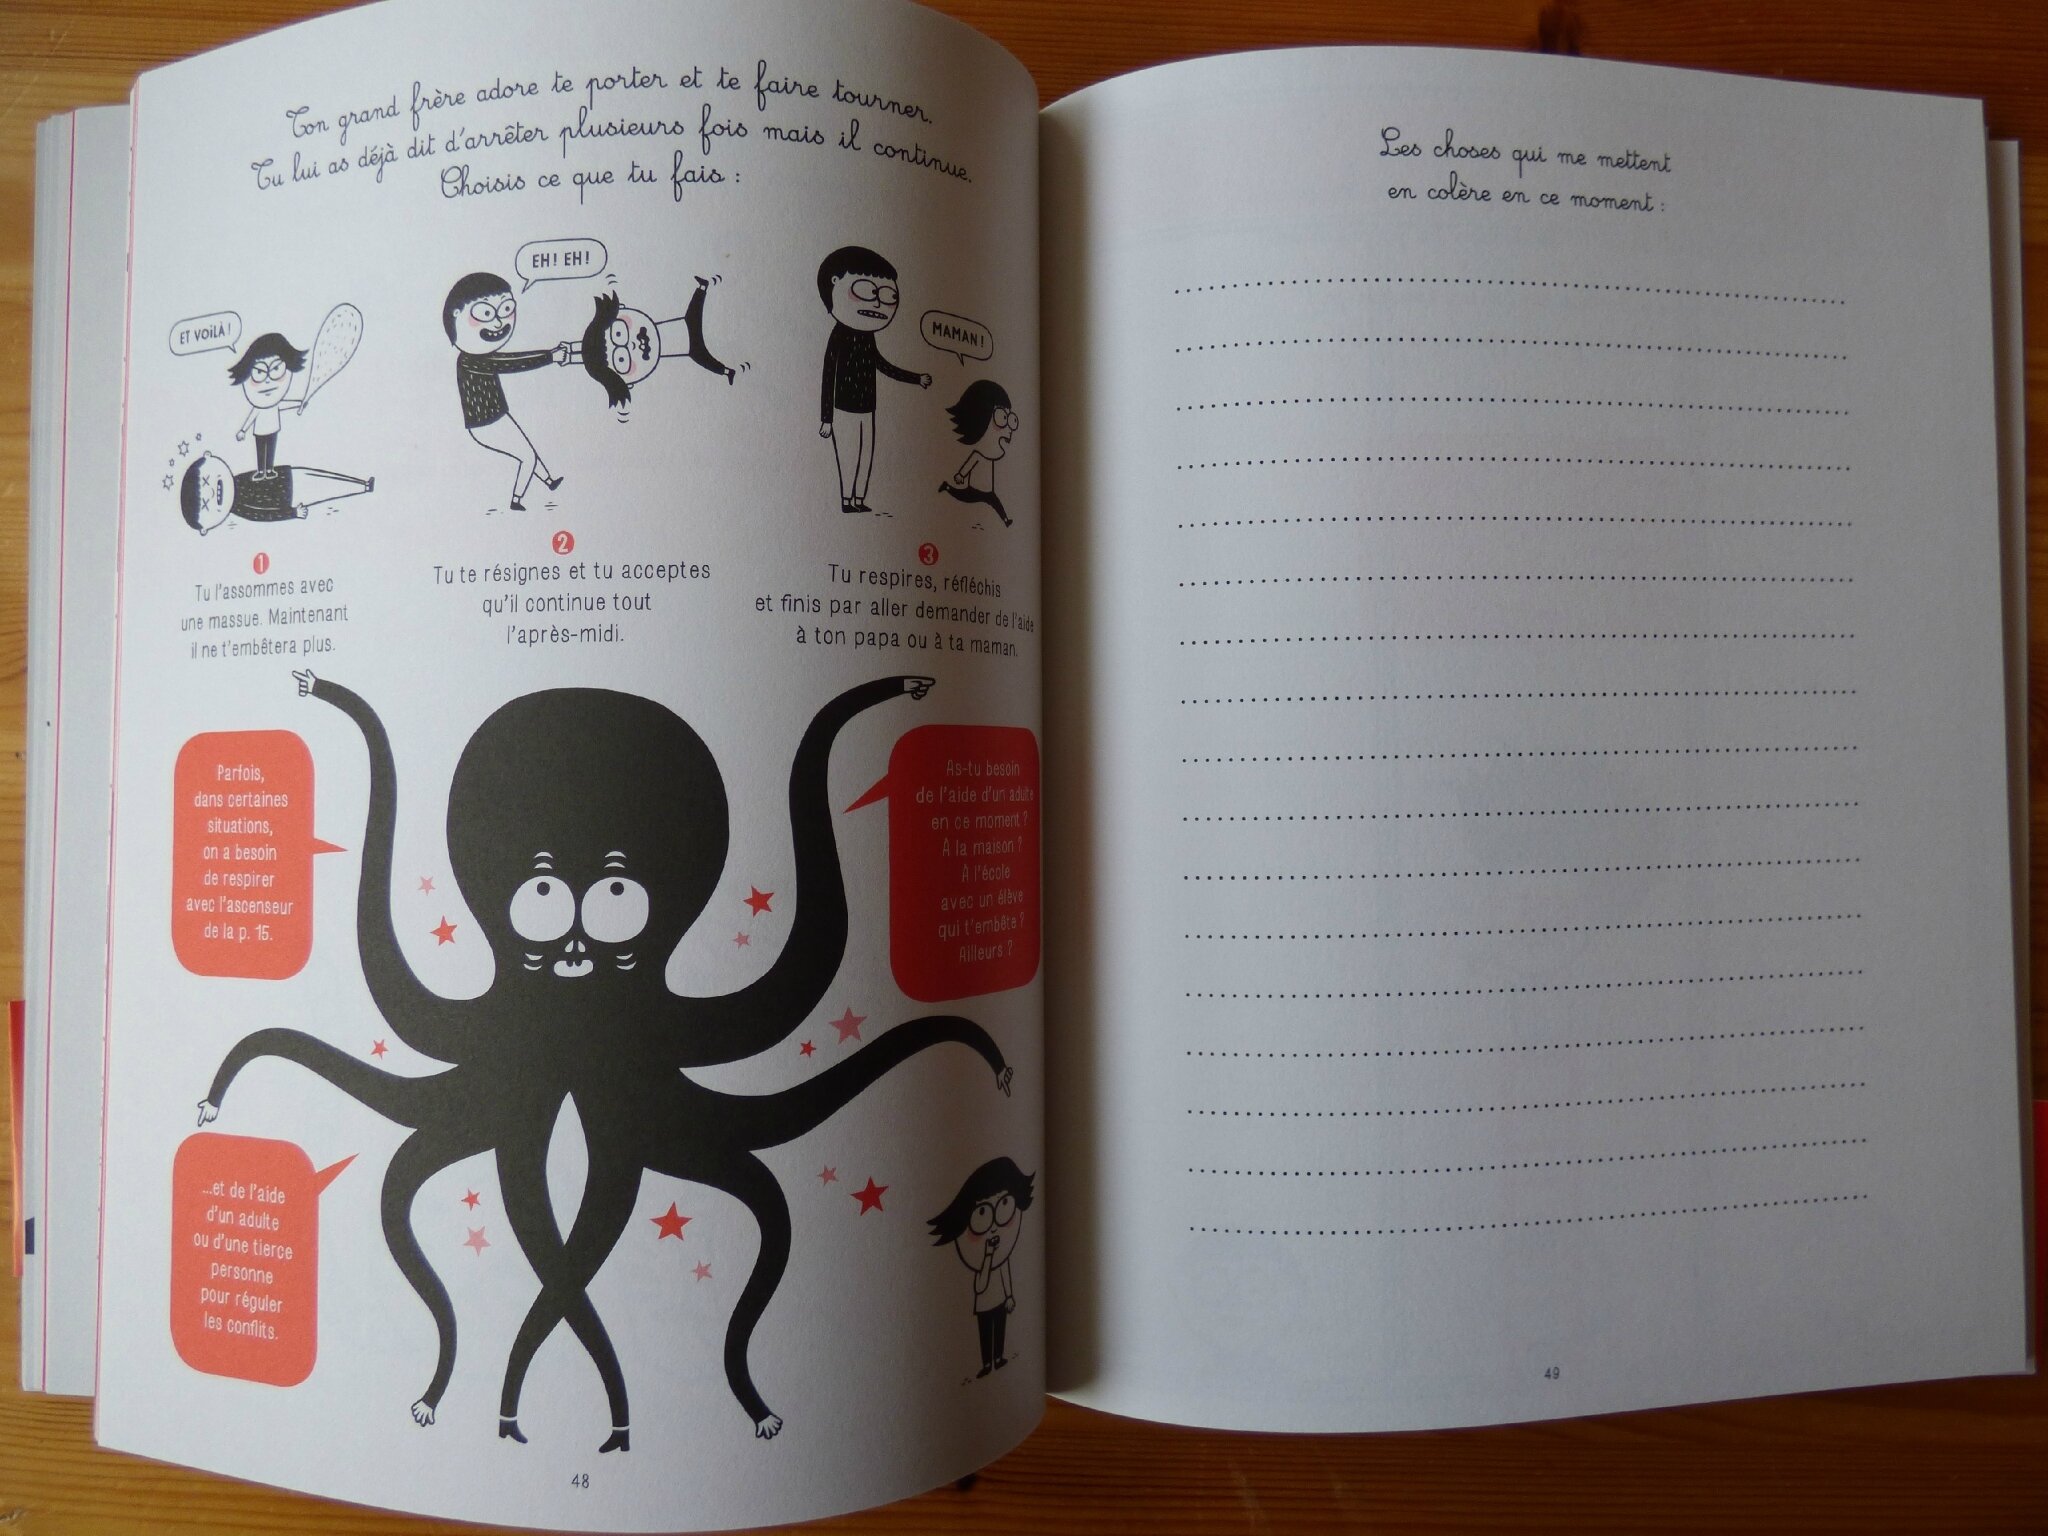 Ton grand frère adore te porter et te faire tourner.
Tu lui as déjà dit d'arrêter plusieurs fois mais il continue.
Choisis ce que tu fais :
ET VOILÀ !
EH ! EH !
MAMAN !
1
Tu l'assommes avec
une massue. Maintenant
il ne t'embêtera plus.
2
Tu te résignes et tu acceptes
qu'il continue tout
l'après-midi.
3
Tu respires, réfléchis
et finis par aller demander de l'aide
à ton papa ou à ta maman.
Parfois,
dans certaines
situations,
on a besoin
de respirer
avec l'ascenseur
de la p. 15.
As-tu besoin
de l'aide d'un adulte
en ce moment ?
À la maison ?
À l'école
avec un élève
qui t'embête ?
Ailleurs ?
...et de l'aide
d'un adulte
ou d'une tierce
personne
pour réguler
les conflits.
48
Les choses qui me mettent
en colère en ce moment :
49